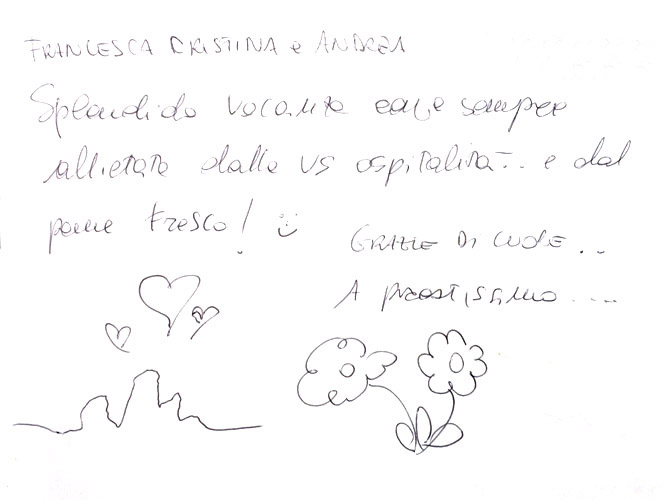 FRANCESCA CRISTINA e ANDREA
Splendida vacanza come sempre
allietata dalla vs ospitalità... e dal
pane fresco! :)
GRAZIE DI CUORE...
A prestissimo....